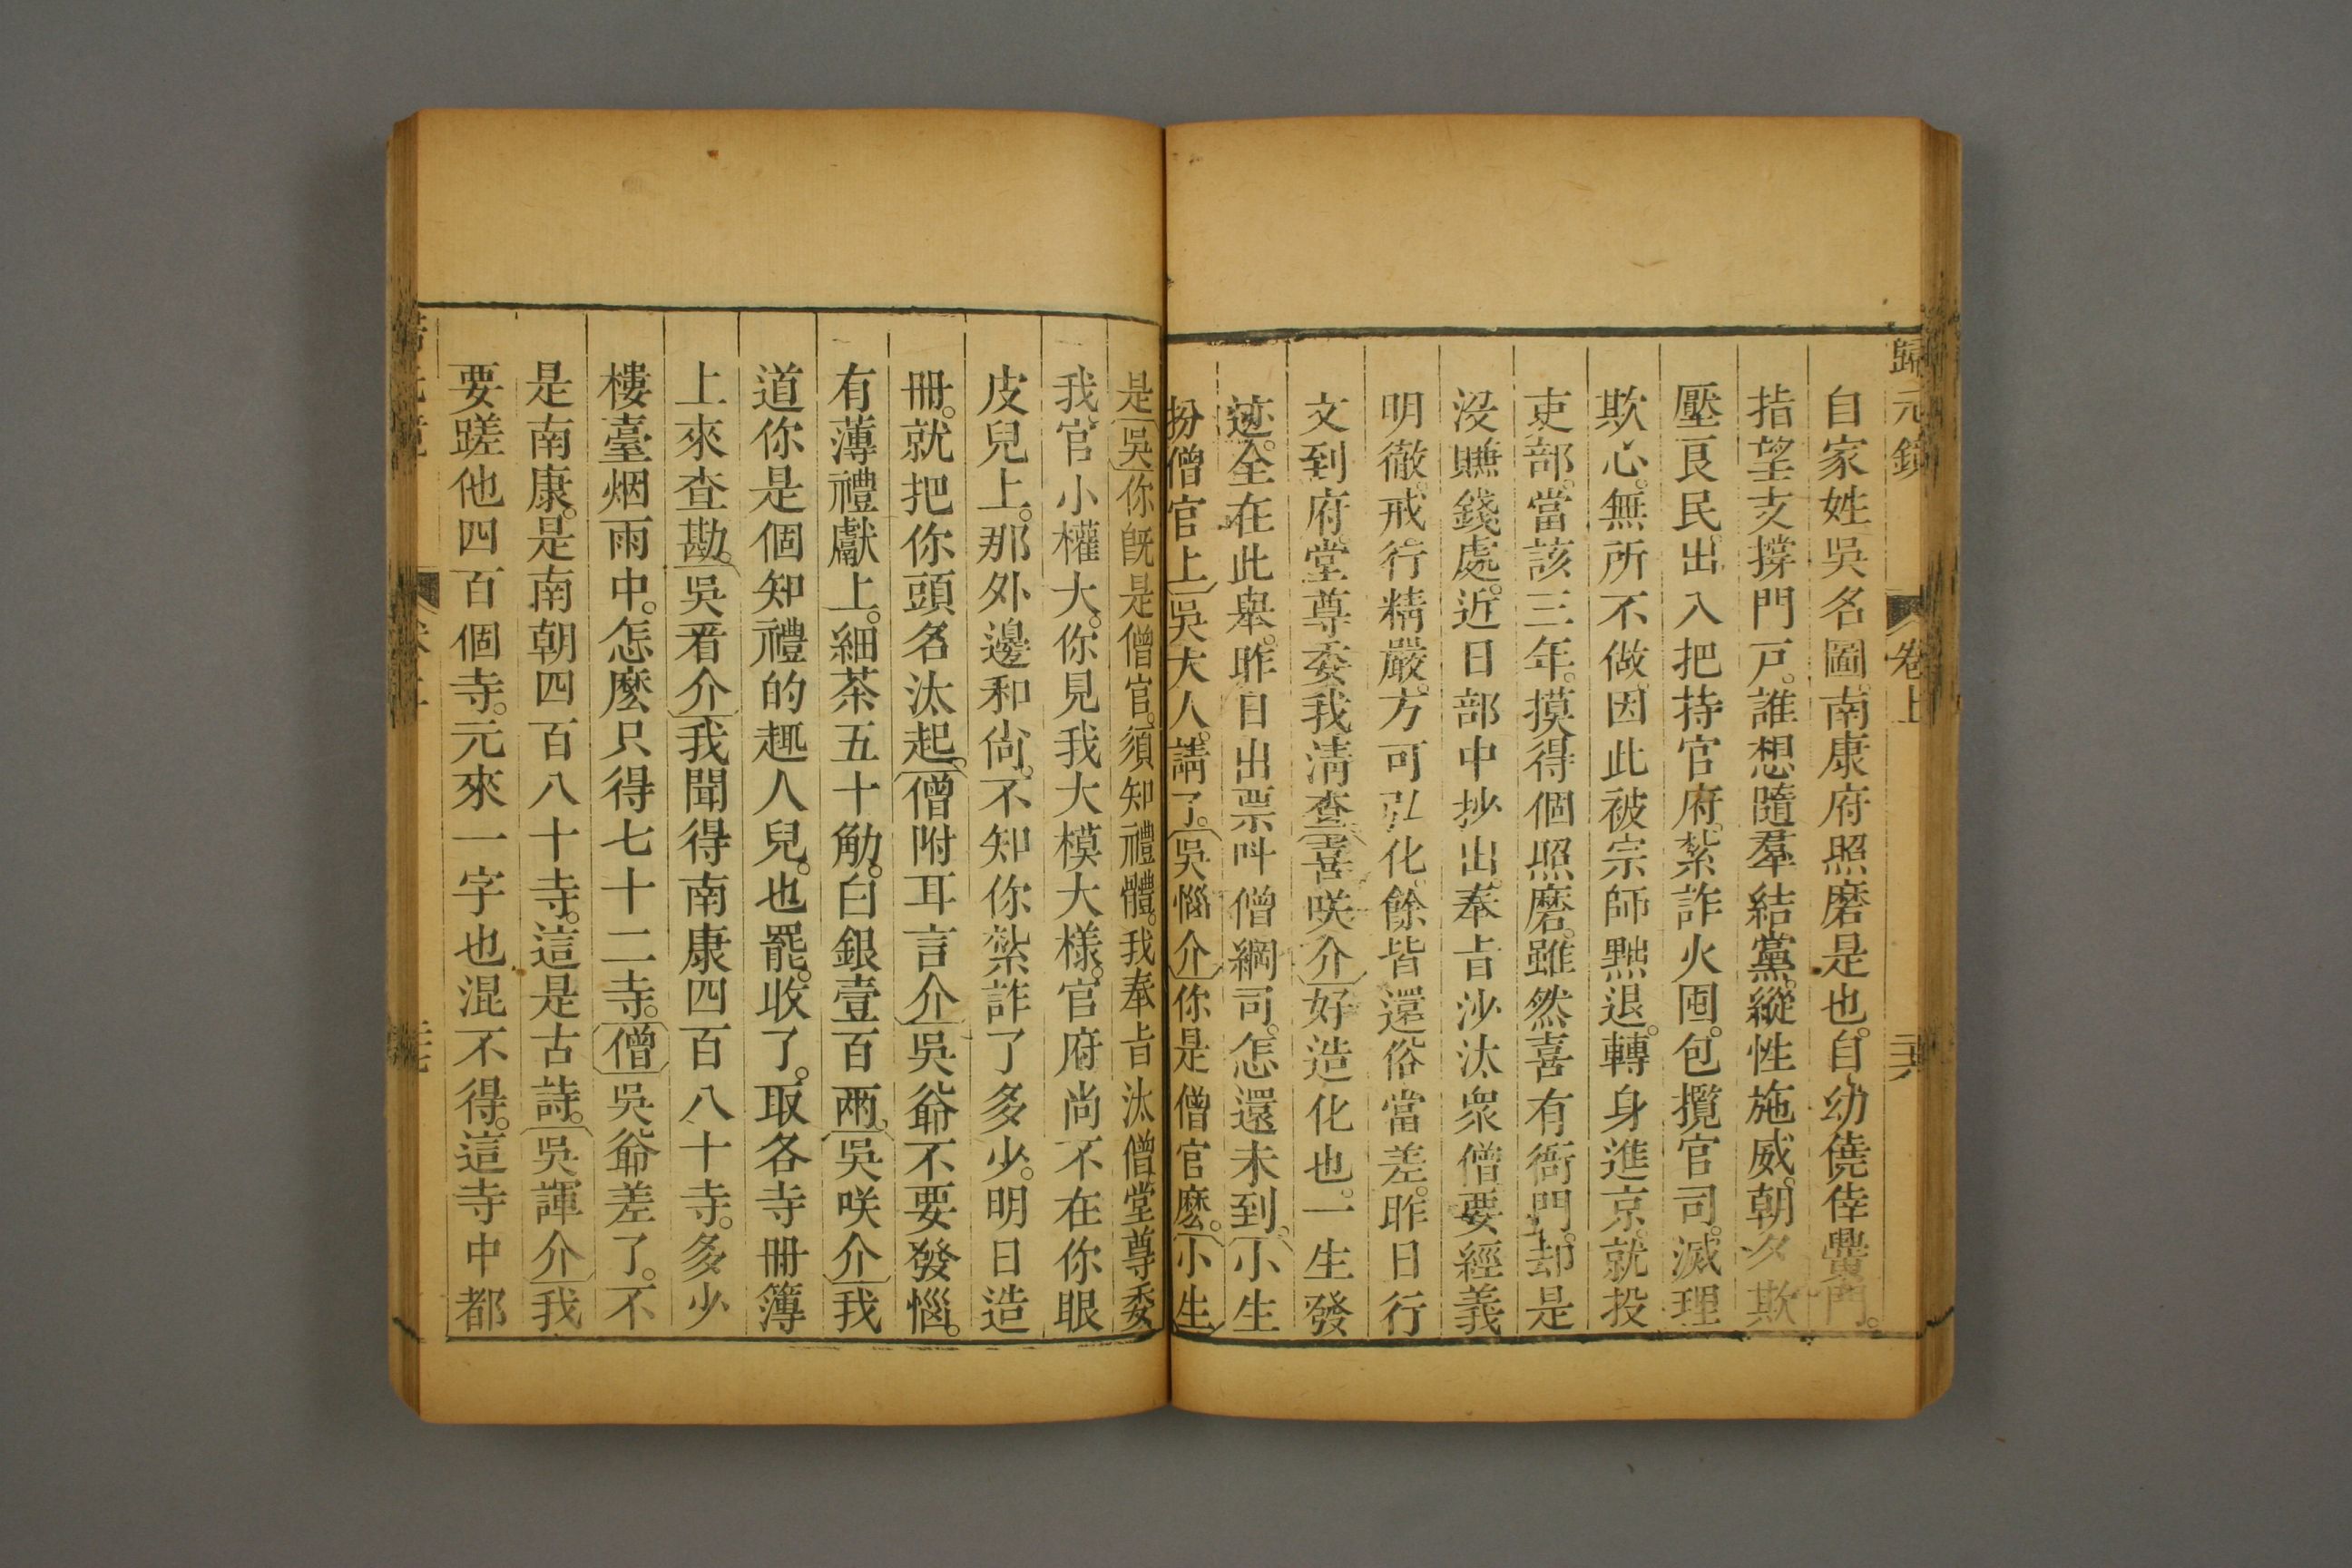 歸元鏡 卷上 二十六
自家姓吳名圖。南康府照磨是也。自幼僥倖黌門。
指望支撐門戸。誰想隨羣結黨。縱性施威。朝夕欺
壓良民。出入把持官府。紮詐火囤。包攬官司。滅理
欺心。無所不做。因此被宗師黜退。轉身進京。就投
吏部。當該三年。摸得個照磨。雖然喜有衙門。却是
沒賺錢處。近日部中抄出。奉旨沙汰衆僧。要經義
明徹。戒行精嚴。方可弘化。餘皆還俗當差。昨日行
文到府。堂尊委我淸查。喜咲介好造化也。一生發
迹。全在此舉。昨自出票呌僧綱司。怎還未到。小生
扮僧官上吳大人。請了。吳惱介你是僧官麽。小生
是吳你旣是僧官。須知禮體。我奉旨汰僧。堂尊委
我官小權大。你見我大模大樣。官府尚不在你眼
皮兒上。那外邊和尙。不知你紮詐了多少。明日造
冊。就把你頭名汰起。僧附耳言介吳爺不要發惱。
有薄禮獻上。細茶五十觔。白銀壹百兩。吳咲介我
道你是個知禮的趣人兒。也罷。收了。取各寺冊簿
上來查勘。吳看介我聞得南康四百八十寺。多少
樓臺烟雨中。怎麽只得七十二寺。僧吳爺差了。不
是南康。是南朝四百八十寺。這是古詩。吳諢介我
要蹉他四百個寺。元來一字也混不得。這寺中都